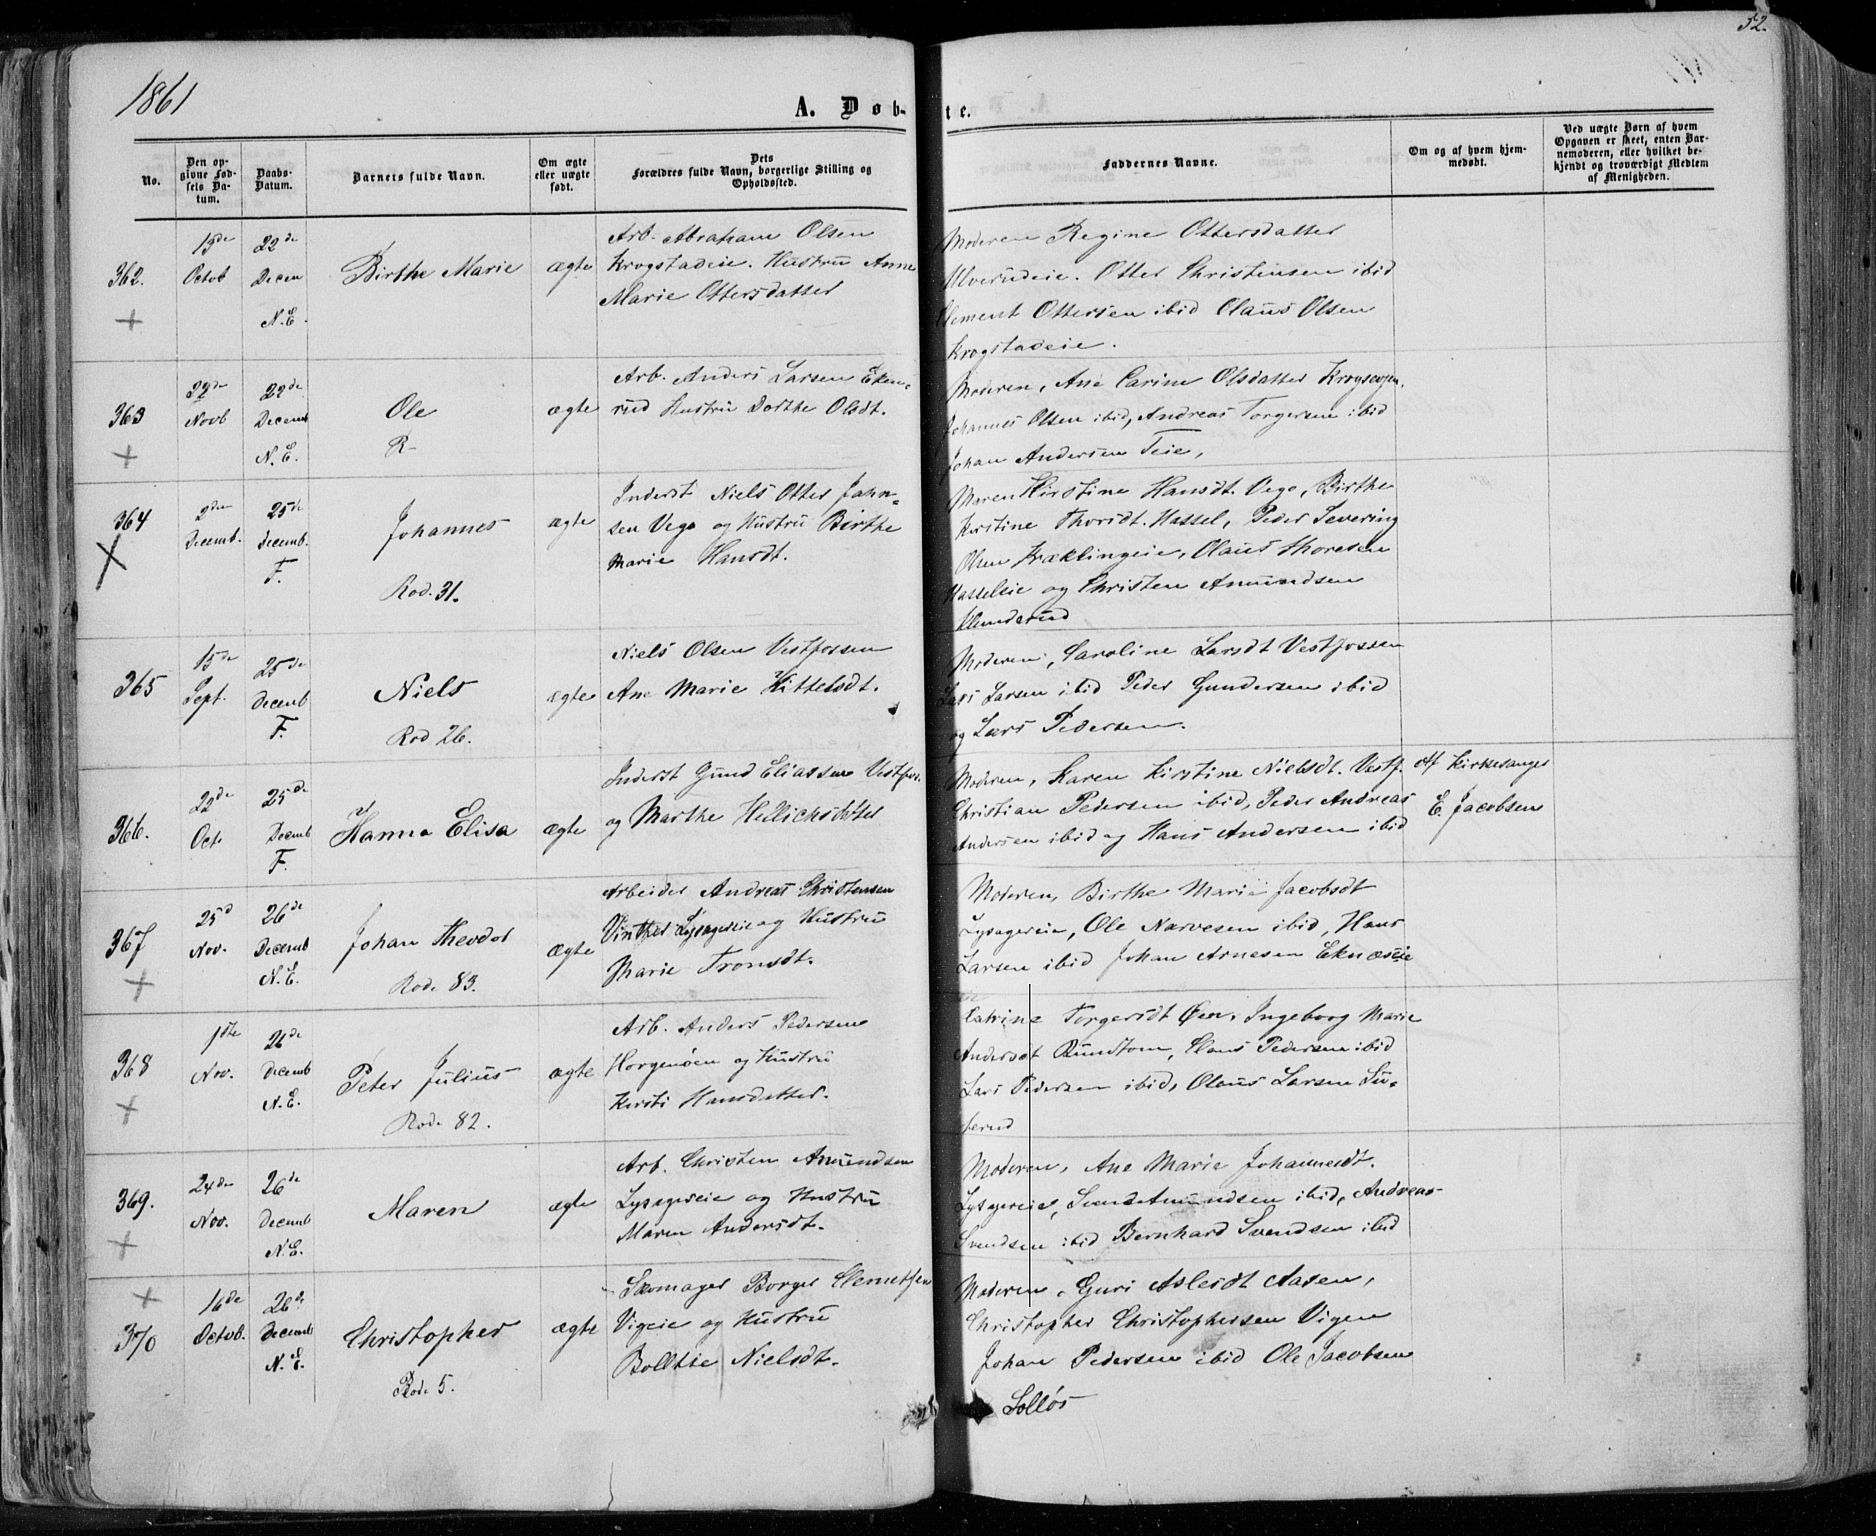 1861
52.
A. Døb-
te.
No.
Den op-
givne Fød-
sels Da-
tum.
Daabs-
Datum.
Barnets fulde Navn.
Om ægte
eller uægte
født.
Dets
Forældres fulde Navn, borgerlige Stilling og
Opholdssted.
Faddernes Navne.
Om og af hvem hjem-
medøbt.
Ved uægte Børn af hvem
Opgaven er skeet, enten Bar-
nemoderen, eller hvilket be-
kjendt og troværdigt Medlem
af Menigheden.
362.
13de
Octob
22de
Decem
N.E.
Birthe Marie
ægte
Arb. Abraham Olsen
Krogstadeie. Hustru Anne
Marie Ottersdatter
Moderen Regine Ottersdatter
Ulverudeie. Otter Christensen ibid
Clement Ottersen ibid Claus Olsen
Krogstadeie.
363
22de
Novb
22de
Decemb
N.E.
Ole
R-
ægte
Arb. Anders Larsen Eken-
rud Hustru Dorthe Olsdt.
Moderen, Ane Carine Olsdatter
Johannes Olsen ibid, Andreas Torgersen ibid
Johan Andersen Teie,
364
2den
Decemb.
25de
Decemb.
F.
Johannes
Rod. 31.
ægte
Inderst Niels Otter John-
sen Vego og Hustru Birthe
Marie Hansdt.
Maren Kirstine Hansdt. Vego, Birthe
Kirstine Thorsdt. Hassel, Peder Severing
Olsen Kræklingeie, Olaus Thoresen
Hasseleie og Christen Amundsen
Klunderud
365
15de
Sept.
25de
Decemb
F.
Niels
Rod 26.
ægte
Niels Olsen Vestfossen
Ane Marie Kittelsdt.
Moderen, Caroline Larsdt Vestfossen
Lars Larsen ibid Peder Gundersen ibid
og Lars Pedersen.
366.
22de
Oct.
25de
Decemb
F.
Hanna Elisa
ægte
Inderst Gund Eliassen Vestfos.
og Marthe Hellichsdatter
Moderen, Karen Kirstine Nielsdt. Vestf.
Christian Pedersen ibid, Peder Andreas
Andersen ibid og Hans Andersen ibid
af Kirkesanger
E. Jacobsen
367
25d
Nov.
26de
Decemb
N.E.
Johan Theodor
Rode 83.
ægte
Arbeider Andreas Christensen
Vinther Lysagereie og Hustru
Marie Tronsdt.
Moderen, Birthe Marie Jacobsdt
Lysagereie, Ole Narvesen ibid, Hans
Larsen ibid Johan Arnesen Eknæseie
368
1ste
Nov.
26de
Decemb
N.E.
Peter Julius
Rode 82.
ægte
Arb. Anders Pedersen
Horgenøen og Hustru
Kirsti Hansdatter.
Catrine Torgersdt Øen, Ingeborg Marie
Andersdt Rundtom, Hans Pedersen ibid
Lars Pedersen ibid, Olaus Larsen Su-
berud
369.
24de
Nov.
26de
Decemb
N.E.
Maren
ægte
Arb. Christen Amundsen
Lysagereie og Hustru
Maren Andersdt.
Moderen, Ane Marie Johannesdt.
Lysagereie, Svend Amundsen ibid, Andreas
Svendsen ibid Bernhard Svendsen ibid
370
16de
Octob.
26de
Decemb
N.E.
Christopher
Rode 5.
ægte
Skomager Borger Clemetsen
Vigeie og Hustru
Bolltie Nielsdt.
Moderen, Guri Aslesdt Aasen,
Christopher Christophersen Vigen
Johan Pedersen ibid Ole Jacobsen
Solløs